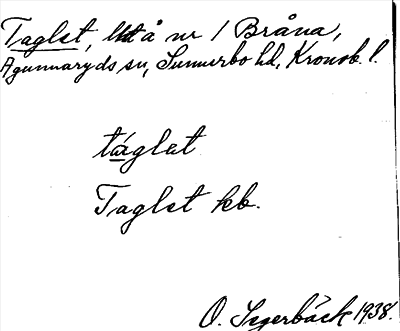 Taglet, å nr 1 Bråna,
Agunnaryds sn, Sunnerbo hd, Kronob. l.
táglet
Taglet kb.
O. Segerbäck 1938.